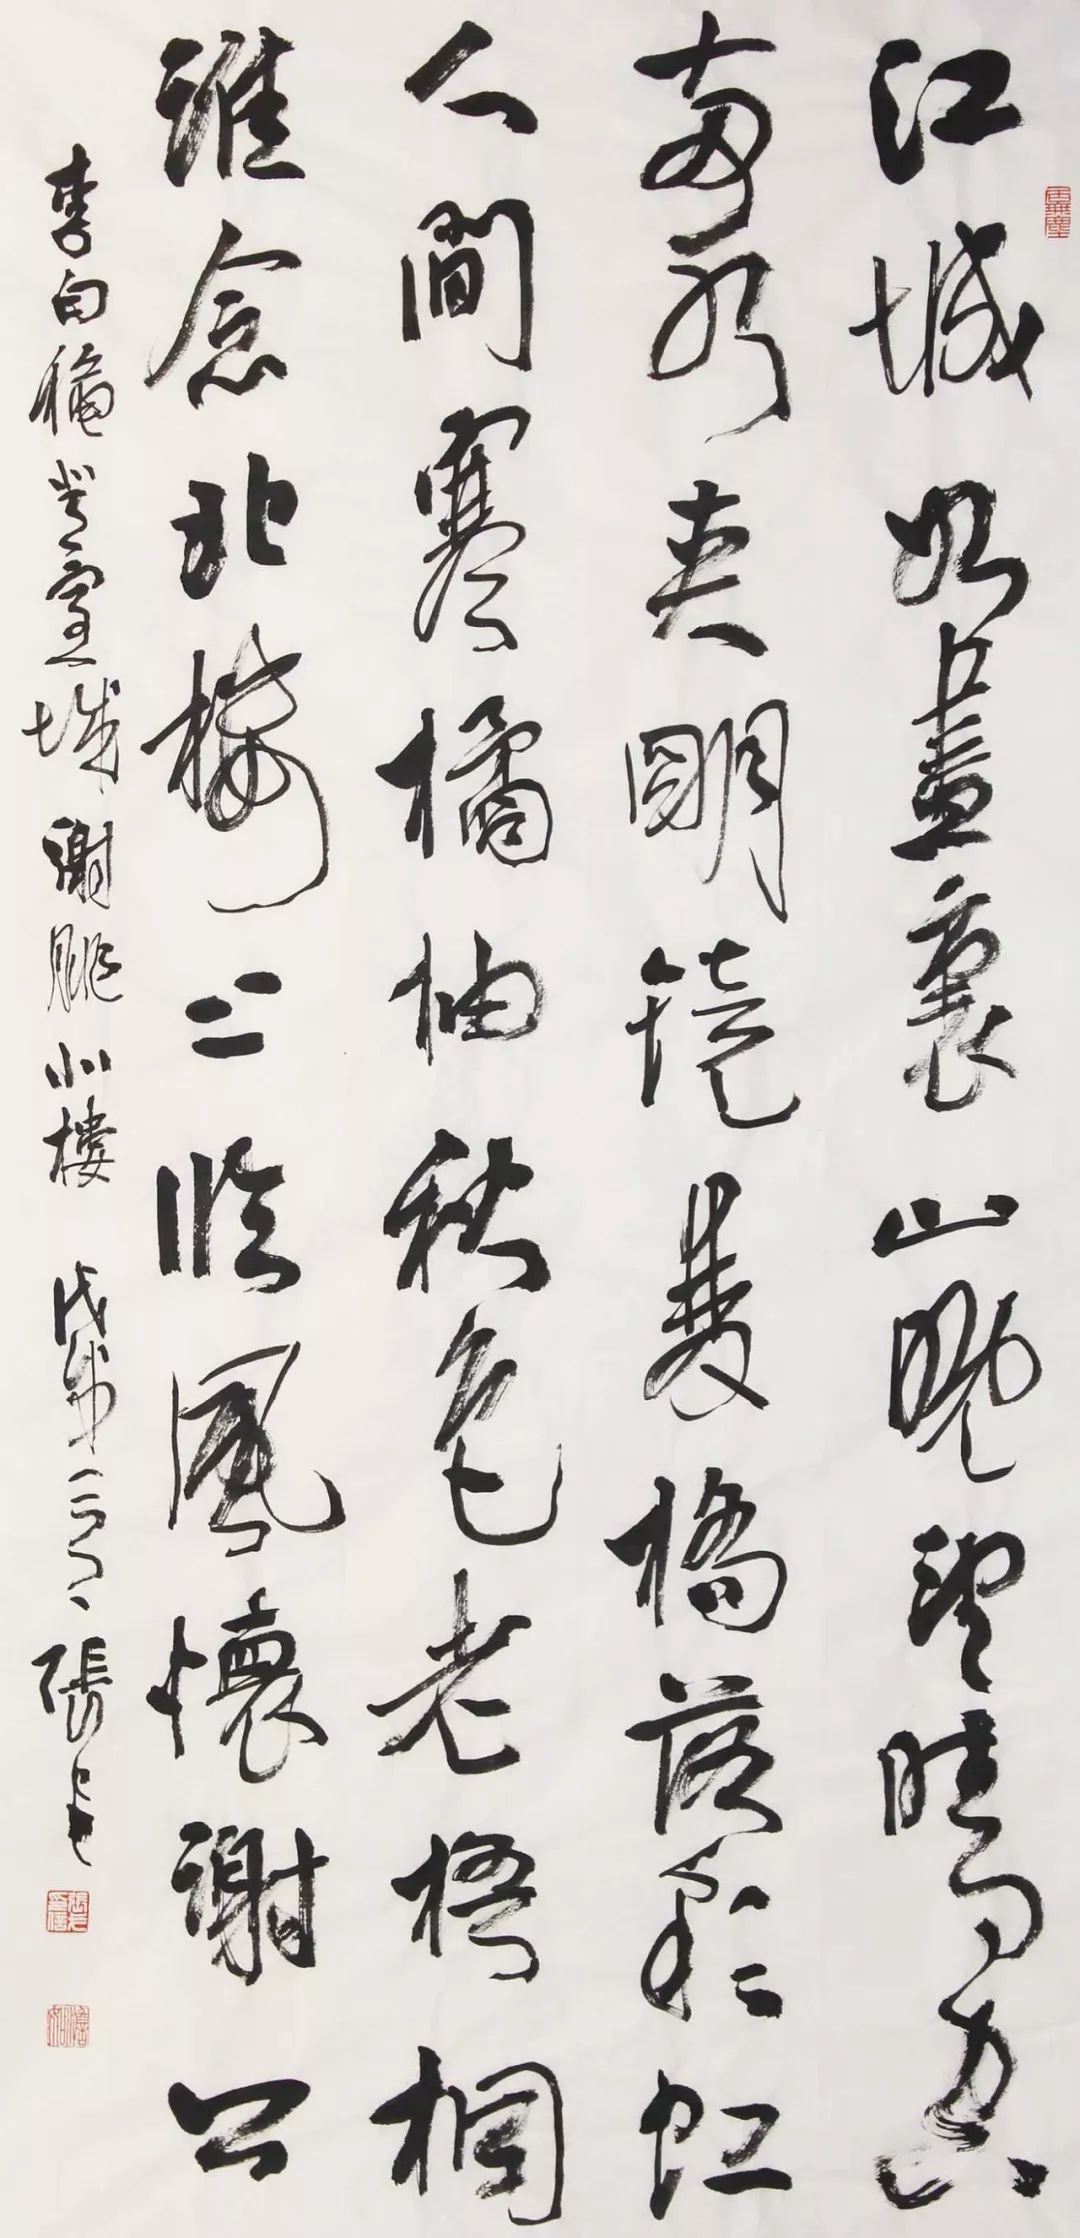 江城如畫裏山晚望晴空
兩水夾明鏡雙橋落彩虹
人間寒橘柚秋色老梧桐
誰念北樓上臨風懷謝公
李白秋登宣城謝朓北樓 戊戌 張